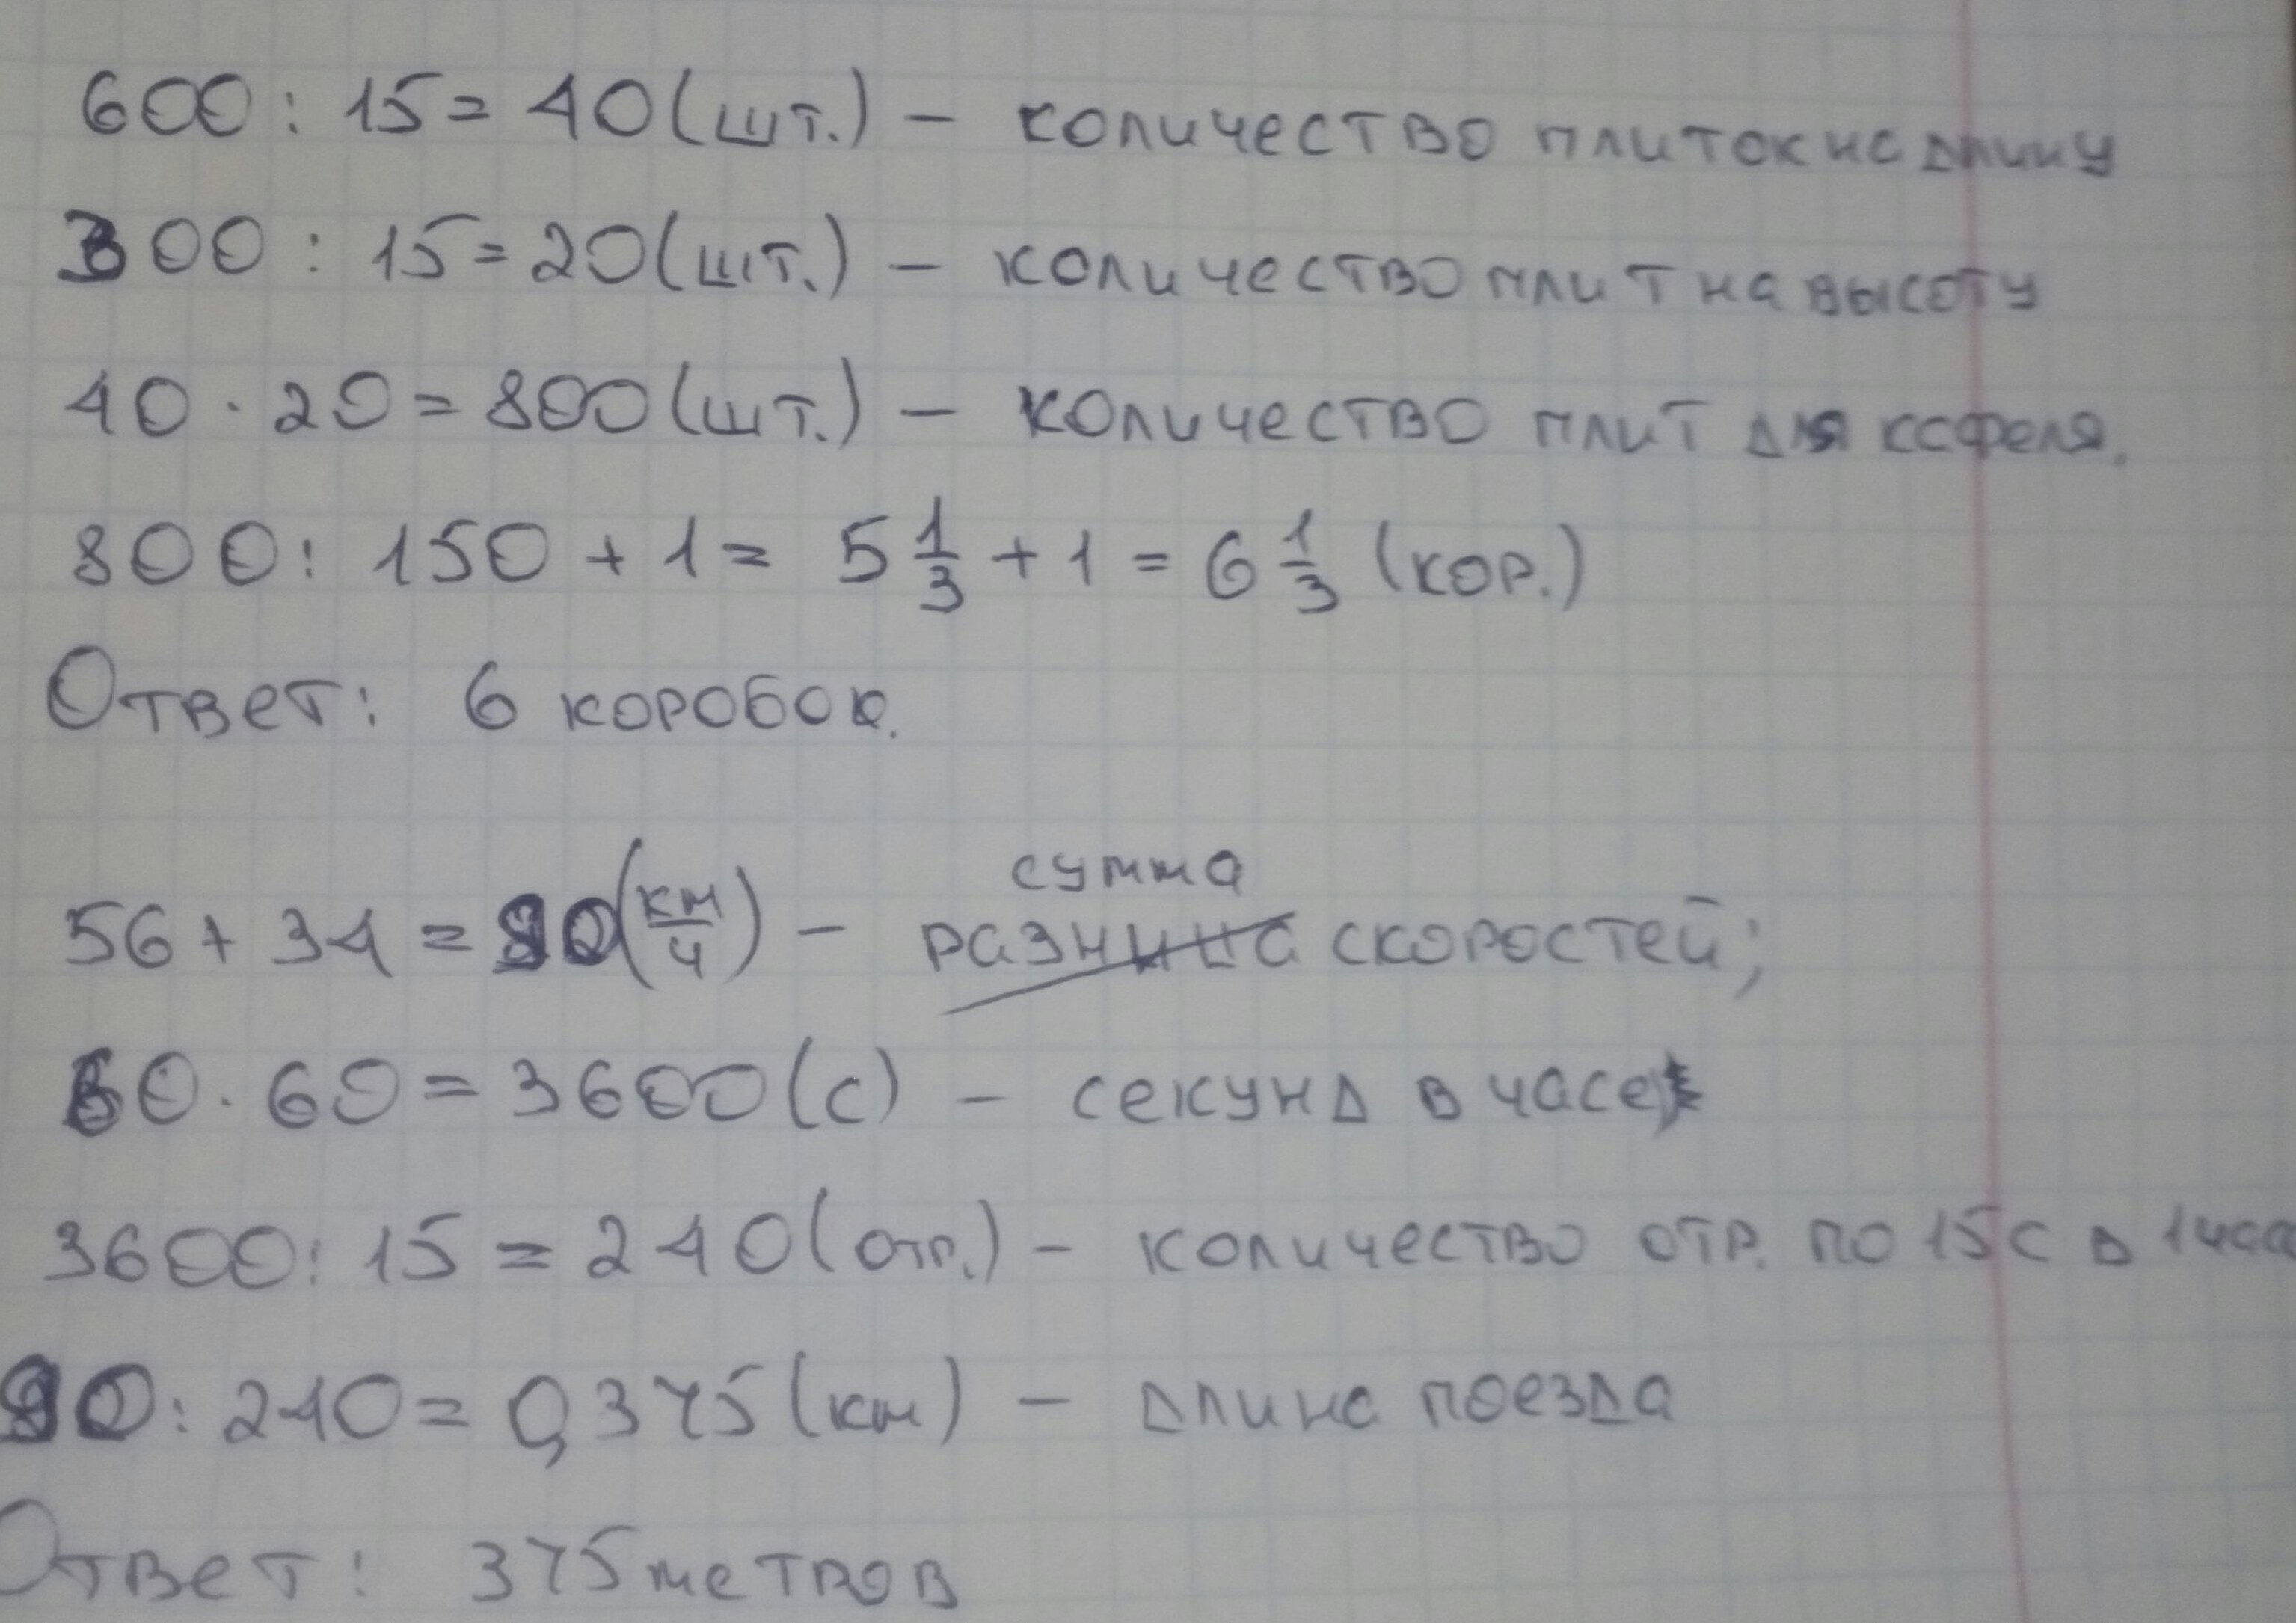 600 : 15 = 40 (шт.) – количество плиток на длину
300 : 15 = 20 (шт.) – количество плит на высоту
40 · 20 = 800 (шт.) – количество плит для кафеля.
800 : 150 + 1 = 5 1/3 + 1 = 6 1/3 (кор.)
Ответ: 6 коробок.
сумма
56 + 34 = 90 (км/ч) – разница скоростей;
60 · 60 = 3600 (с) – секунд в часе
3600 : 15 = 240 (отр.) – количество отр. по 15 с в 1 часе
90 : 240 = 0,375 (км) – длина поезда
Ответ: 375 метров